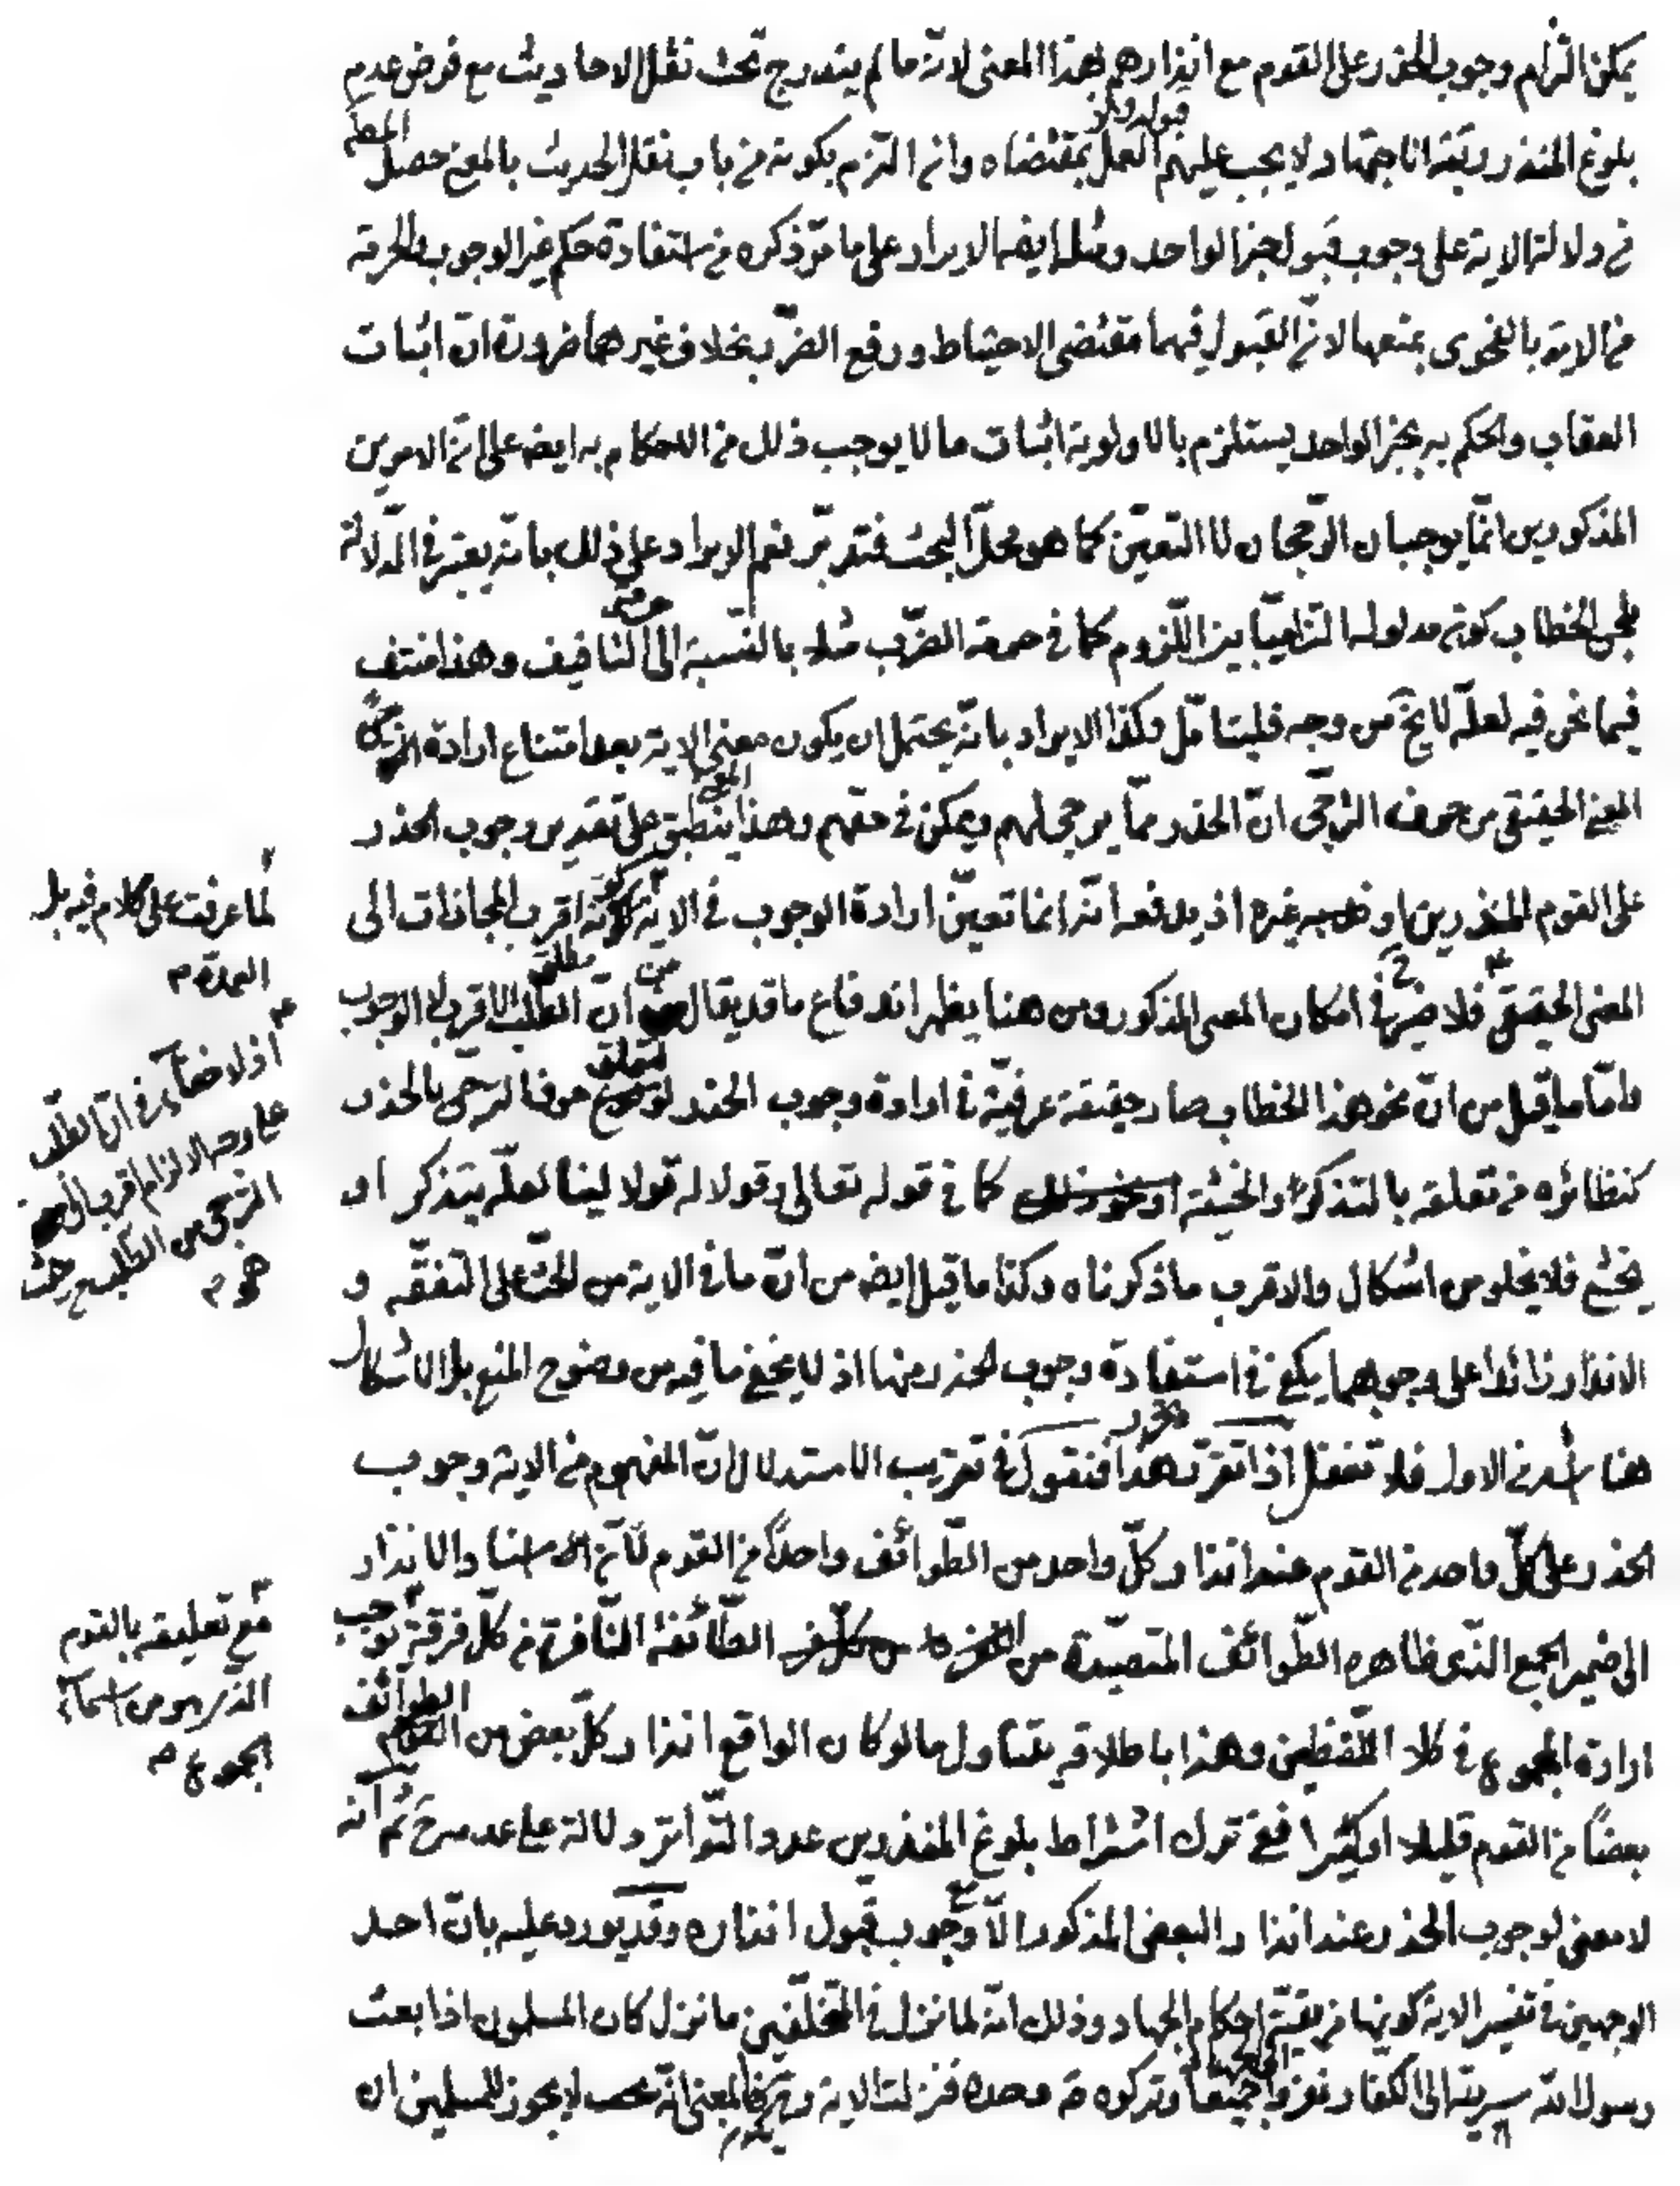 يمكن التزام وجوب الحذر على القوم مع انذارهم بهذا المعنى لانه ما لم يندرج تحت نقل الاحاديث مع فرض عدم
بلوغ المنذر رتبة الاجتهاد لا يجب عليهم قبوله ولا العمل بمقتضاه وان التزم بكونه من باب نقل الحديث بالمعنى حصل المطم
في دلالة الاية على وجوب قبول خبر الواحد ومثله ايضا الايراد على ما مر ذكره من استفادة حكم غير الوجوب والحرمة
من الاية بالفحوى بمنعها لان القبول فيهما مقتضى الاحتياط ودفع الضرر بخلاف غيرهما ضرورة ان اثبات
العقاب والحكم به بخبر الواحد يستلزم بالاولوية اثبات ما لا يوجب ذلك من الاحكام به ايضا على ان الامرين
المذكورين انما يوجبان الرجحان لا التعين كما هو محل البحث فتدبر نعم الايراد على ذلك بانه يعتبر في الدلالة
فحوى الخطاب كونه مدلولا التزاميا بين اللزوم كما في حرمة الضرب مثلا بالنسبة الى حرمة التافيف وهذا منتف
فيما نحن فيه لعله لا يخ من وجه فليتامل وكذا الايراد بانه يحتمل ان يكون معنى الاية بعد امتناع ارادة
المعنى الحقيقي من حرف الترجي ان الحذر مما يرجى لهم ويمكن في حقهم وهذا المعنى ينطبق على تقدير وجوب الحذر
على القوم المنذرين او غيره اذ يدفعه انه انما تعين ارادة الوجوب في الاية كونه اقرب المجازات الى
المعنى الحقيقي فلا ضير في امكان المعنى المذكور ومن هنا يظهر اندفاع ما قد يقال من ان مطلق الطلب الاقرب لا الوجوب
واما ما قيل من ان نحو هذا الخطاب صار حقيقة عرفية في ارادة وجوب الحذر لتعلق حرف الترجي بالحذر
كنظائره من تعلقه بالتذكر والخشية كما في قوله تعالى وقولا له قولا لينا لعله يتذكر او
يخشى فلا يخلو من اشكال والاقرب ما ذكرناه وكذا ما قيل ايضا من ان ما في الاية من الحث على التفقه و
الانذار زائدا على وجوبهما يكفي في استفادة وجوب الحذر منها اذ لا يخفى ما فيه من وضوح المنع بل الاشكال
هنا اشد من الاول فلا تغفل اذا تقرر هذا فنقول في تقريب الاستدلال ان المفهوم من الاية وجوب
الحذر على كل واحد من القوم عند انذار كل واحد من الطوائف واحدا من القوم لان اسناد الانذار
الى ضمير الجمع الذي ظاهره الطوائف المتصيدة من الطائفة النافرة من كل فرقة يوجب
ارادة المجموع في كلا اللفظين وهذا باطلاقه يتناول ما لو كان الواقع انذار كل بعض من الطوائف
بعضا من القوم قليلا او كثيرا ففي ترك اشتراط بلوغ المنذرين عدد التواتر دلالة على عدمه ثم انه
لا معنى لوجوب الحذر عند انذار البعض المذكور الا وجوب قبول انذاره وقد يورد عليه بان احد
الوجهين في تفسير الاية كونها من بقية احكام الجهاد وذلك انه لما نزل في المتخلفين ما نزل كان المسلمون اذا بعث
رسول الله سرية الى الكفار نفروا جميعا وتركوه وحده فنزلت الاية المعنى انه لا يجوز للمسلمين ان
لما عرفت على كلام فيه بل
العمدة م
اذ لا خفاء في ان الطلب
على وجه الالزام اقرب الى
الترجي من الطلب من حيث
هو م
مع تعليقه بالقوم
الذي هو من اسماء
الجموع م